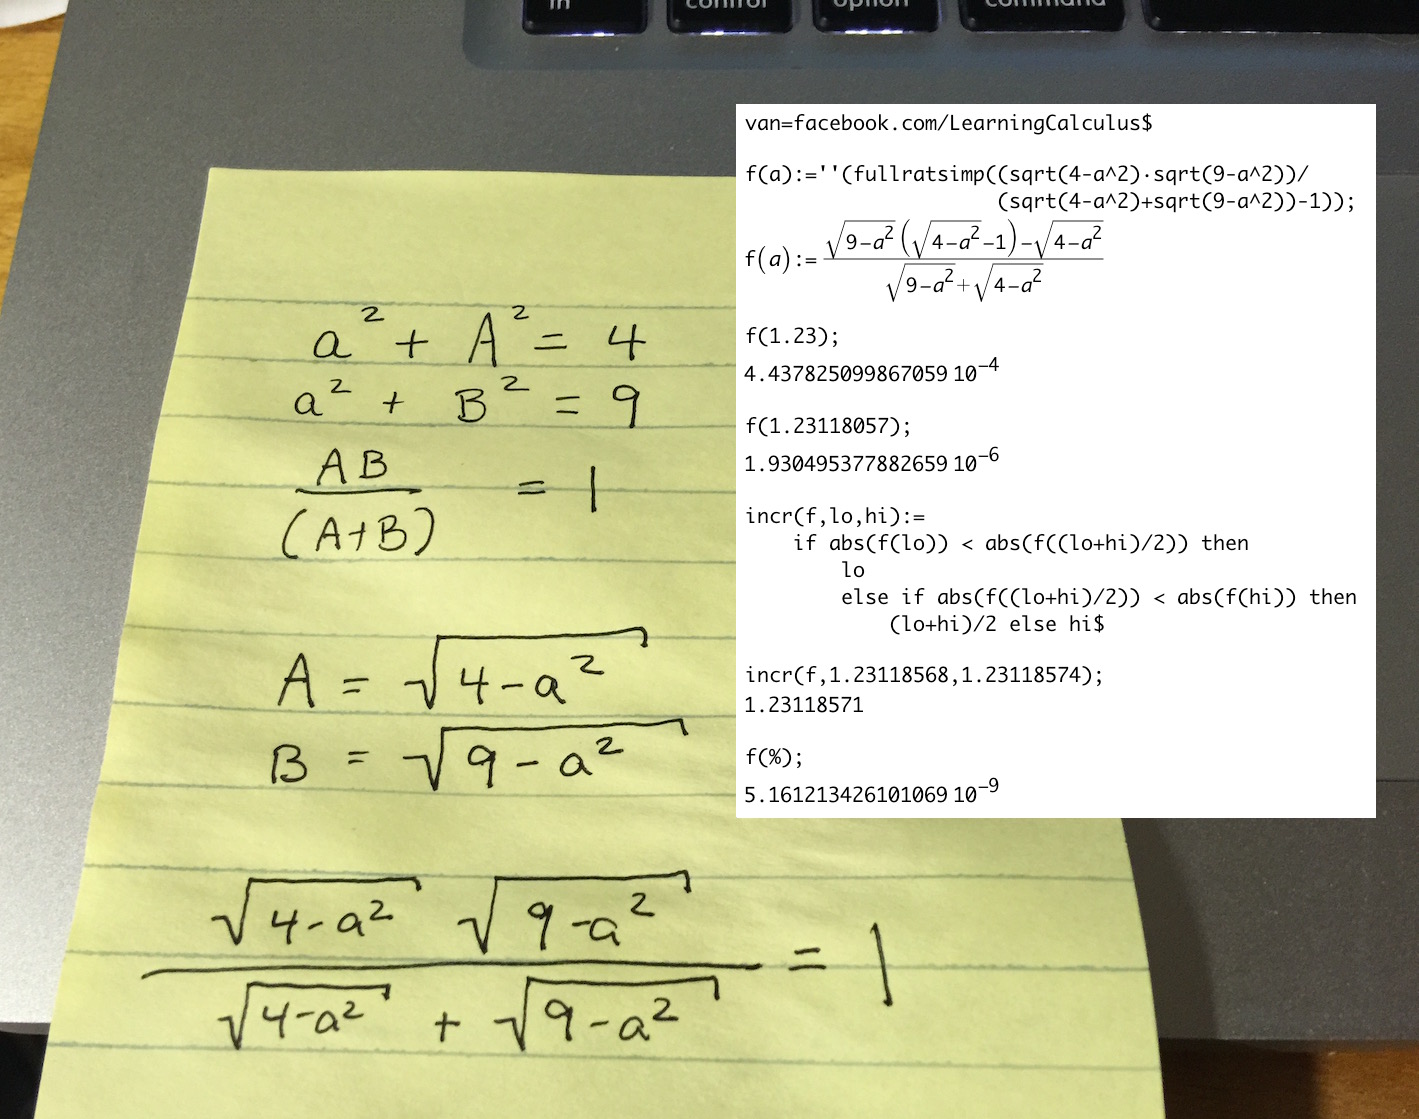 in control option command
a² + A² = 4
a² + B² = 9
AB
(A+B)
= 1
A = √4-a²
B = √9-a²
√4-a² √9-a²
√4-a² + √9-a²
= 1
van=facebook.com/LearningCalculus$
f(a):=''(fullratsimp((sqrt(4-a^2)·sqrt(9-a^2))/
(sqrt(4-a^2)+sqrt(9-a^2))-1));
f(a):=
√9-a² (√4-a²-1)-√4-a²
√9-a²+√4-a²
f(1.23);
4.437825099867059 10⁻⁴
f(1.23118057);
1.930495377882659 10⁻⁶
incr(f,lo,hi):=
if abs(f(lo)) < abs(f((lo+hi)/2)) then
lo
else if abs(f((lo+hi)/2)) < abs(f(hi)) then
(lo+hi)/2 else hi$
incr(f,1.23118568,1.23118574);
1.23118571
f(%);
5.161213426101069 10⁻⁹